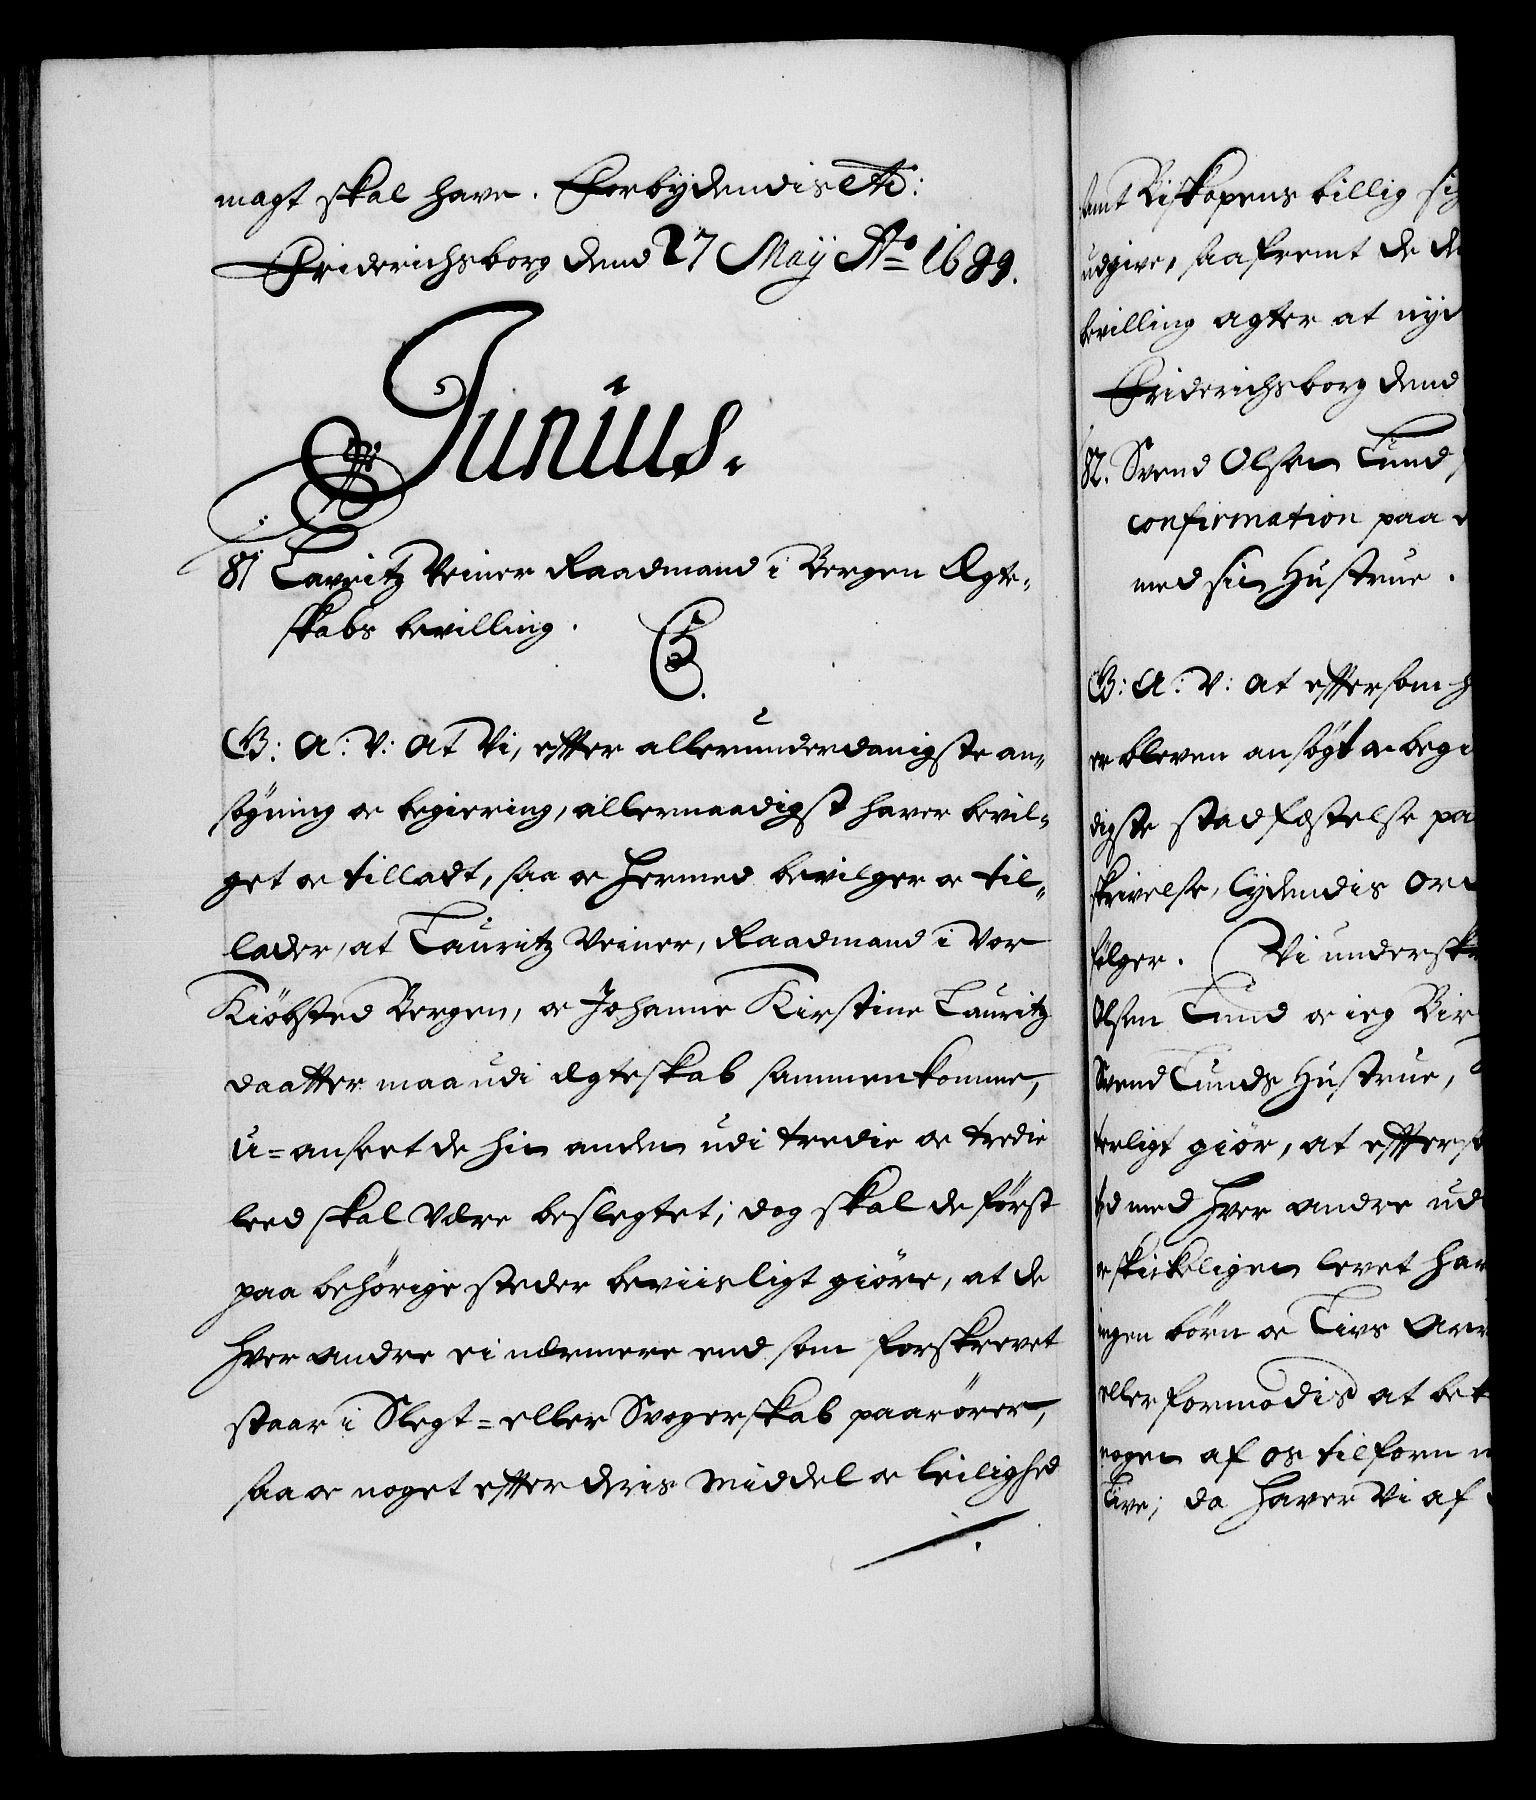 magt skal have. Forbydendis etc:
Friderichsborg dend 27 Maÿ Ao 1689.
Junius.
81 Lauritz Veiner Raadmand i Bergen Ægte-
skabs bevilling.
G.
G: A: V: at Vi, effter allerunderdanigste an-
søgning oc begiering, allernaadigst haver bevil-
get oc tilladt, saa oc hermed bevilger oc til-
lader, at Lauritz Veiner, Raadmand i Vor
Kiöbsted Bergen, oc Johanne Kirstine Lauritz
daatter maa udi ægteskab sammenkomme,
u=anseet de hin anden udi tredie oc tredie
leed skal være beslegtet; dog skal de först
paa behörige steder beviisligt giöre, at de
hver andre ei nærmere end som forskrevet
staar i Slegt= eller Svogerskab paarörer,
saa oc noget effter deris middel oc leilighed
samt Biskopens billig
udgive, saafremt de
bevilling agter at
Friderichsborg dend
82. Svend Olsen Lund
confirmation paa
med sin Hustrue.
G: A: V: at effersom
er bleven ansögt oc
digste stadfæstelse
skrivelse, lydendis
fölger. Vi
Olsen Lund oc ieg
Svend Lunds Hustrue,
terligt giör, at
med hver andre
oc skickeligen levet
ingen börn oc Livs
eller formodis at
nogen af os tilforn
Live; da haver Vi af